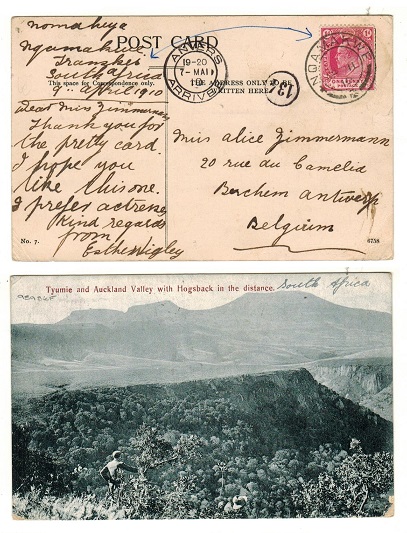 nomahuya
Ngamakwe
Transkei
South Africa
7 April 1910
POST CARD
This space for Correspondence only.
THE ADDRESS ONLY TO BE
WRITTEN HERE
ANVERS
19-20
7-MAI
ARRIVÉE
137
NQAMAKWE
ONE PENNY
POSTAGE
Dear Miss Zimmermann
Thank you for
the pretty card.
I hope you
like this one.
I prefer
Kind regards
from
Esther
Miss Alice Zimmermann
20 rue du Camelia
Berchem Antwerp
Belgium
No. 7.
6758
Tyumie and Auckland Valley with Hogsback in the distance.
South Africa